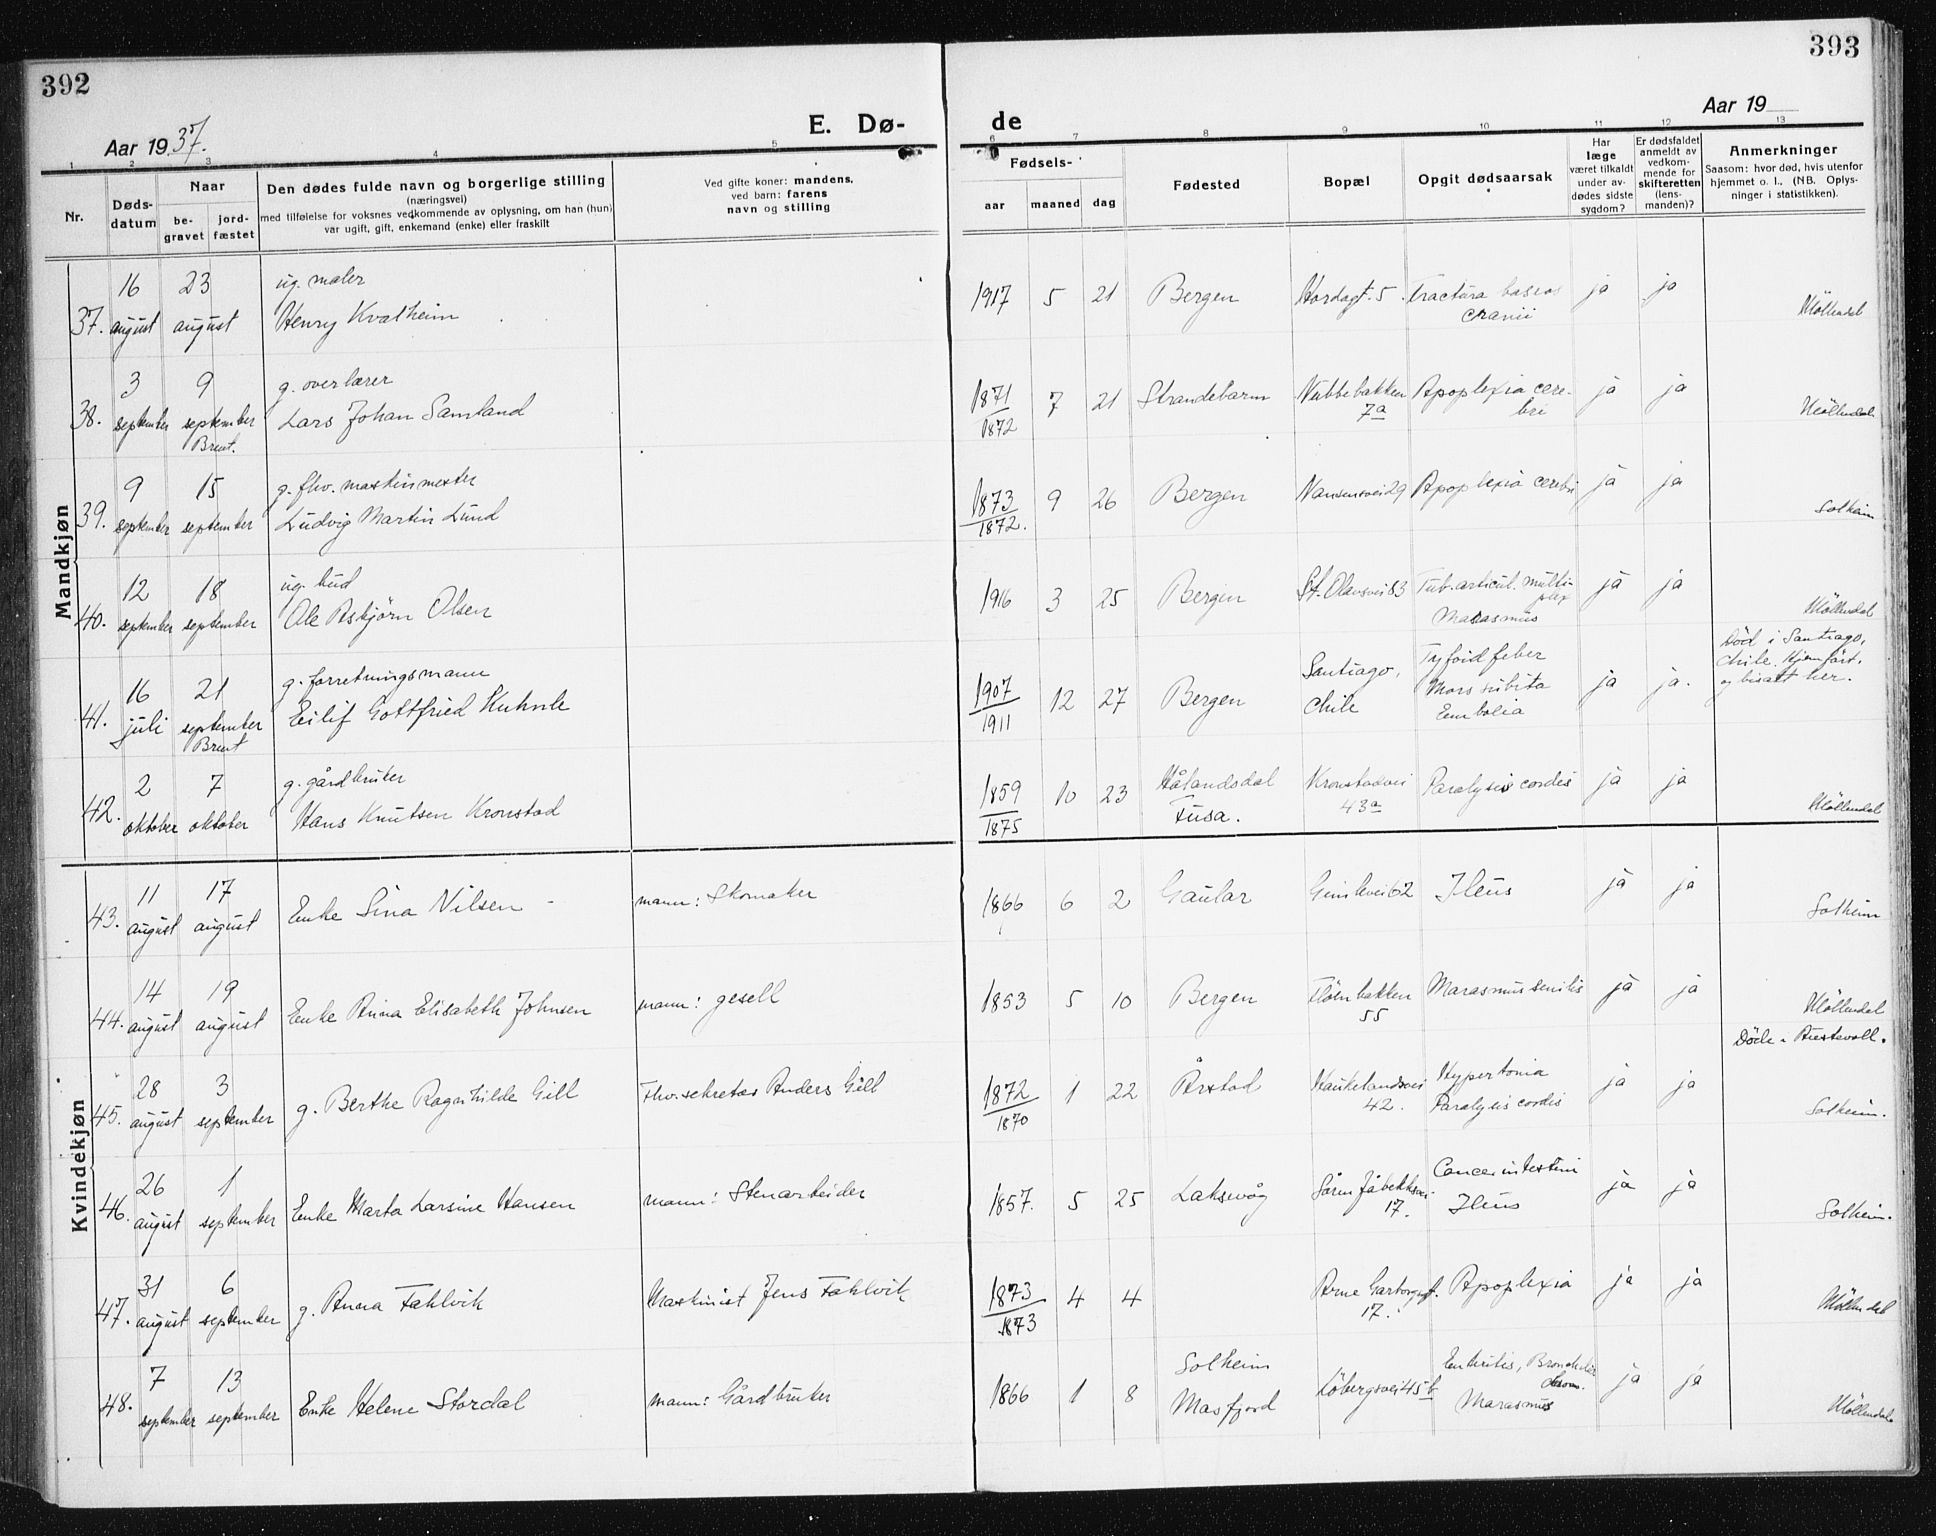 392
393
Aar 1937.
E. Dø-
de
Aar 19
1 2 3 4 5 6 7 8 9 10 11 12 13
Nr.
Døds-
datum
Naar
be-
gravet
jord-
fæstet
Den dødes fulde navn og borgerlige stilling
(næringsvei)
med tilføielse for voksnes vedkommende av oplysning, om han (hun)
var ugift, gift, enkemand (enke) eller fraskilt
Ved gifte koner: mandens,
ved barn: farens
navn og stilling
Fødsels-
aar
maaned
dag
Fødested
Bopæl
Opgit dødsaarsak
Har
læge
været tilkaldt
under av-
dødes sidste
sygdom?
Er dødsfaldet
anmeldt av
vedkom-
mende for
skifteretten
(lens-
manden)?
Anmerkninger
Saasom: hvor død, hvis utenfor
hjemmet o. l., (NB. Oplys-
ninger i statistikken).
Mandkjøn
37. 16 august 23 august ug. maler
Henry Kvalheim
1917 5 21 Bergen Hordagt. 5. Fractura baseos
cranii
ja ja Møllendal
38. 3 september 9 september
Brent.
g. overlærer
Lars Johan Samland
1871
1872
7 21 Strandebarm Nubbebakken
7a
Apoplexia cere-
bri
ja ja Møllendal
39. 9 september 15 september g. fhv. maskinmester
Ludvig Martin Lund
1873
1872.
9 26 Bergen Nansensvei 29 Apoplexia cerebri ja ja Solheim
40. 12 september 18 september ug. bud
Ole Asbjørn Olsen
1916 3 25 Bergen St. Olavsvei 83 Tub. articul. multi-
plex
Marasmus
ja ja Møllendal
41. 16 juli 21 september
Brent
g. forretningsmann
Eilif Gottfried Kuhnle
1907
1911
12 27 Bergen Santiago,
Chile
Tyfoid feber
Mors subita
Embolia
ja ja.
Død i Santiago,
Chile. Hjemført.
og bisatt her.
42. 2 oktober 7 oktober g. gårdbruker
Hans Knutsen Kronstad
1859
1875
10 23 Hålandsdal
Fusa.
Kronstadvei
43a
Paralysis cordis ja ja Møllendal
Kvindekjøn
43. 11 august 17 august Enke Sina Nilsen - mann: Skomaker
1866 6 2 Gaular Gimlevei 62 Ileus ja ja Solheim
44. 14 august 19 august Enke Anna Elisabeth Johnsen mann: gesell
1853 5 10 Bergen Fløenbakken
55
Marasmus senilis ja ja Møllendal
45. 28 august 3 september g. Berthe Ragnhilde Gill Fhv. sekretær Anders Gill
1872
1870
1 22 Årstad Haukelandsvei
42.
Hypertonia
Paralysis cordis
ja ja
Døde i Austevoll.
Solheim.
46. 26 august 1 september Enke Marta Larsine Hansen mann: Stenarbeider
1857. 5 25 Laksevåg
17.
Cancer intestini
Ileus
ja ja Solheim.
47. 31 august 6 september g. Anna Fahlvik Maskinist Jens Fahlvik
1873
1873
4 4 Arne Garborgsgt.
17.
Apoplexia ja ja Møllendal
48. 7 september 13 september Enke Helene Stordal mann: Gårdbruker
1866 1 8 Solheim
Masfjord
Løbergsvei 45 b
Enteritis,
Marasmus
ja ja Møllendal